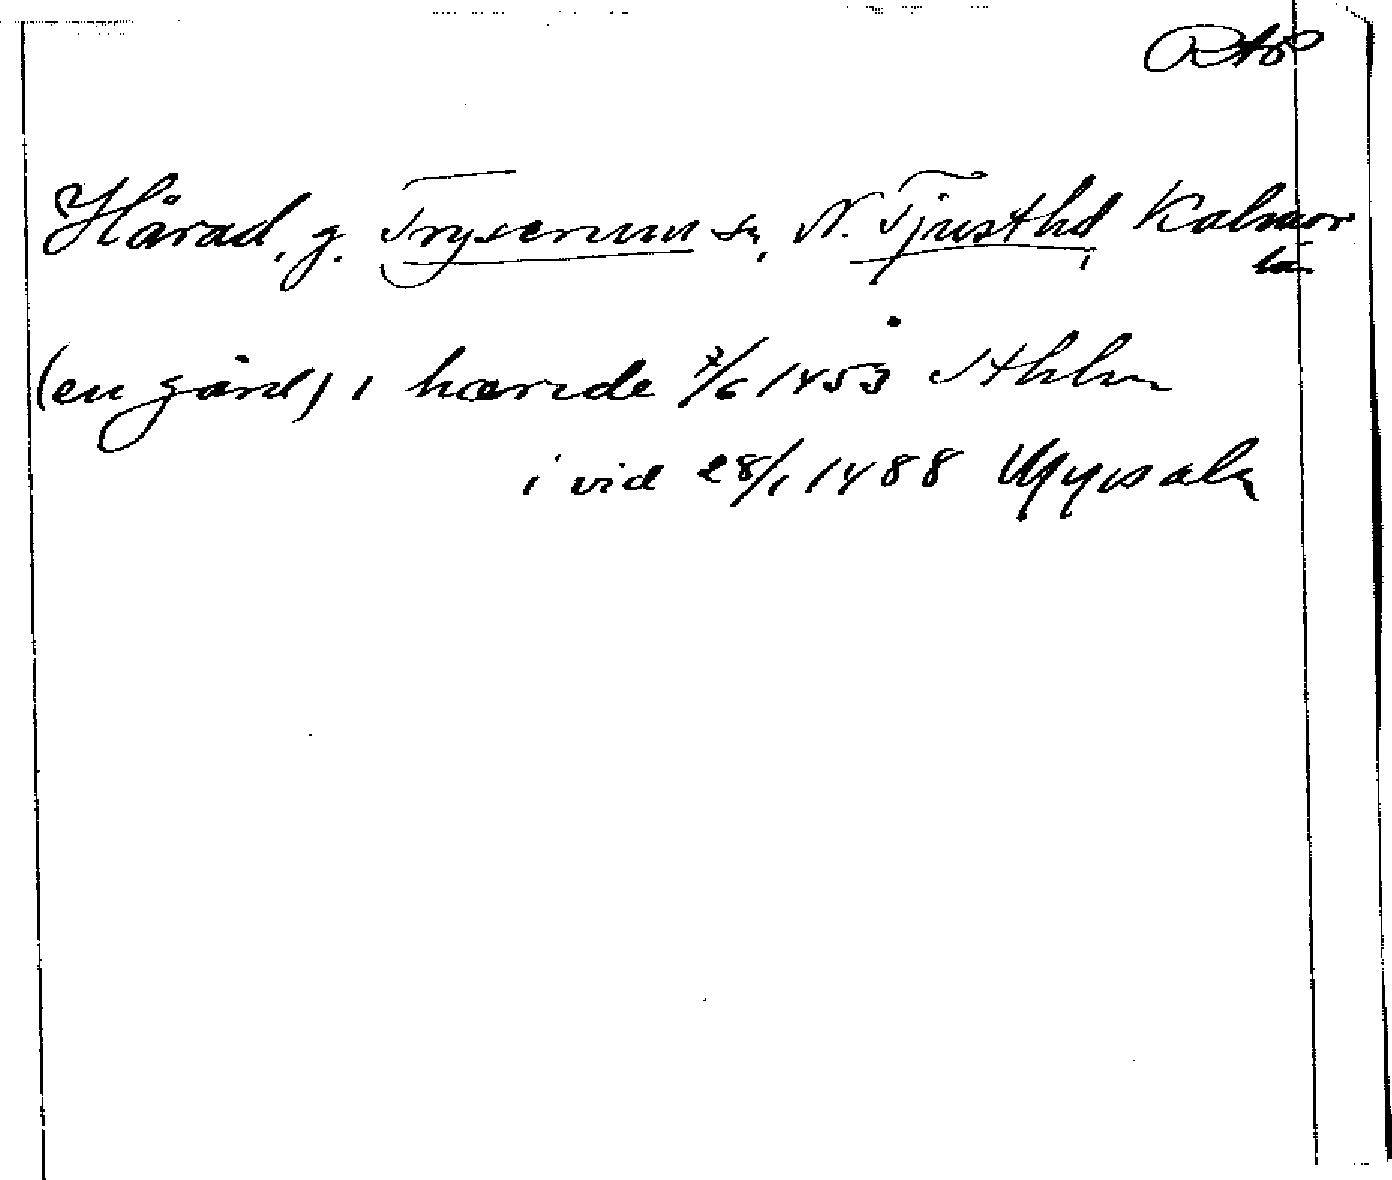 RAÖ
Hårad, g. Tryserum sn, N. Tjusthd, Kalmar
län
(en gård) i hæride 7/6 1453 Sthlm
i vid 28/1 1488 Uppsala